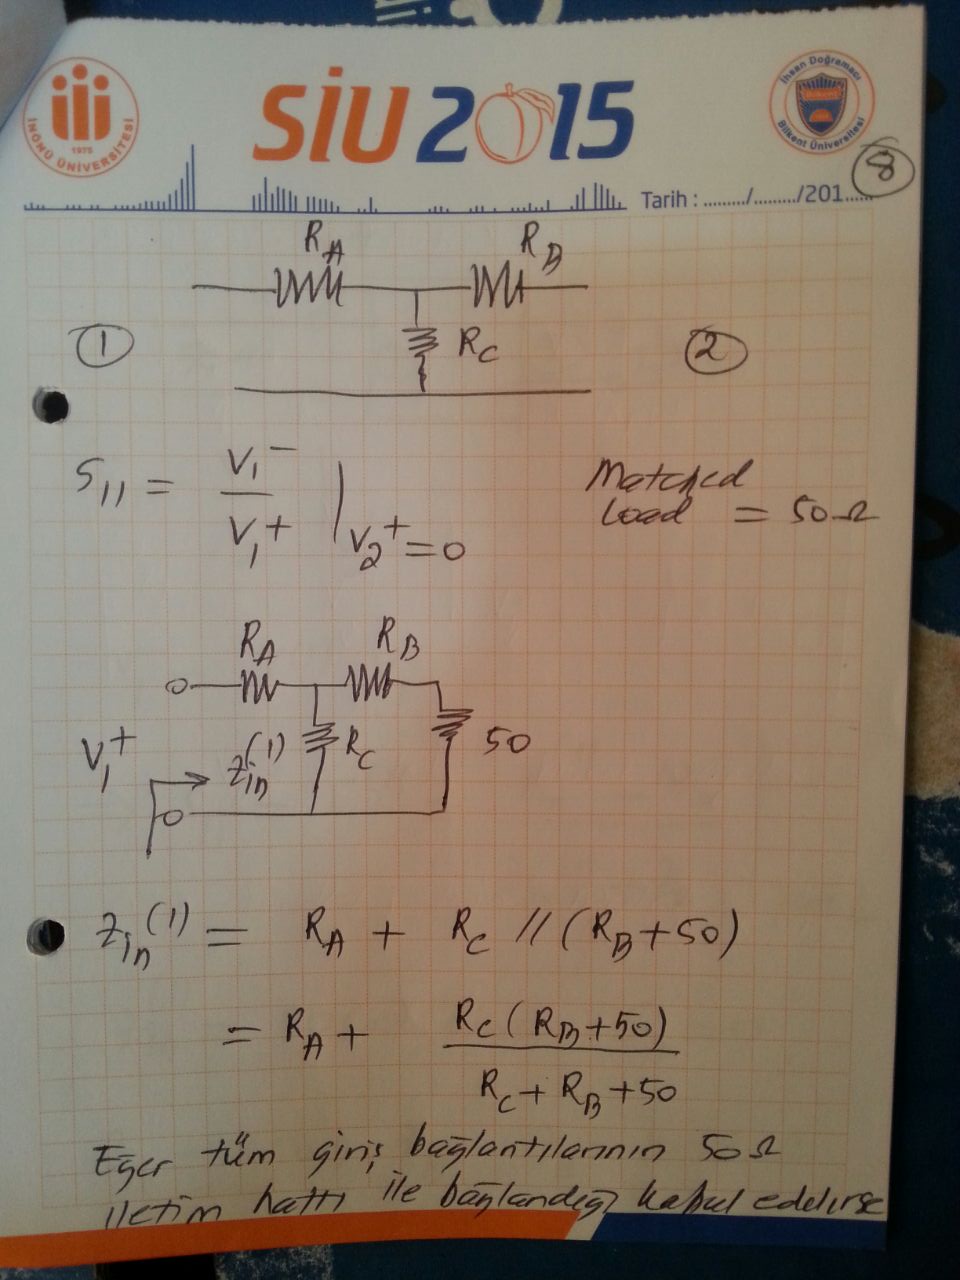 İNÖNÜ ÜNİVERSİTESİ
1975
SİU 2015
İhsan Doğramacı
Bilkent Üniversitesi
8
Tarih : ........./........./201......
R_A
R_B
1
R_C
2
S_11 = V_1^- / V_1^+ | V_2^+ = 0
Matched
Load = 50Ω
R_A
R_B
V_1^+
Z_in^(1)
R_C
50
Z_in^(1) = R_A + R_C // (R_B + 50)
= R_A + R_C (R_B + 50) / R_C + R_B + 50
Eğer tüm giriş bağlantılarının 50Ω
iletim hattı ile bağlandığı kabul edilirse